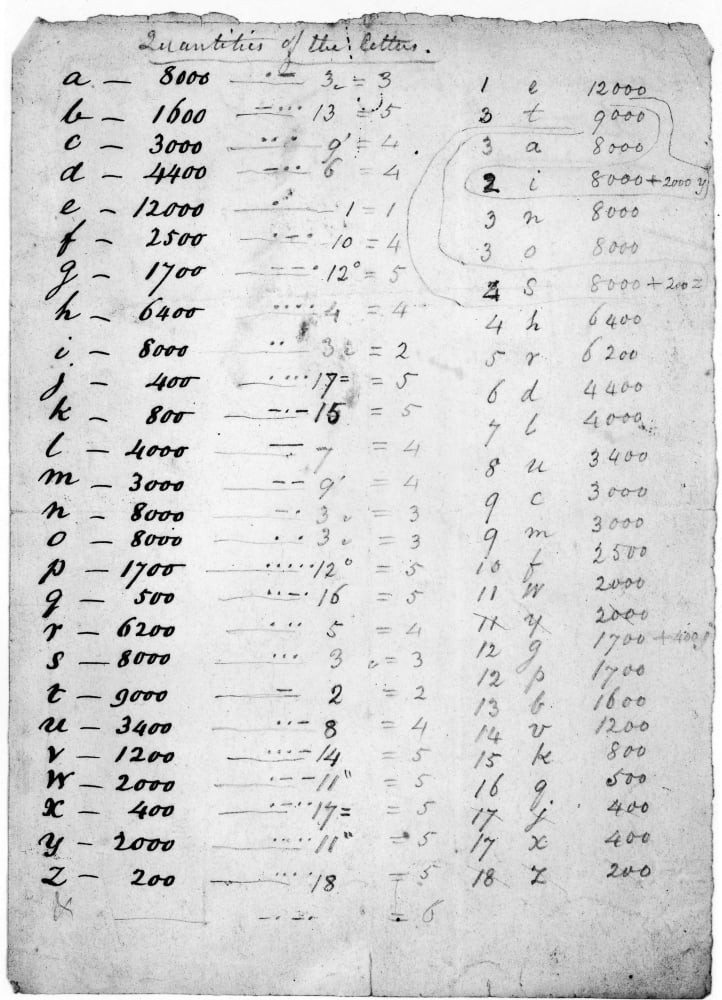 Quantities of the letters.
a – 8000 — 3 = 3
b – 1600 — 13 = 5
c – 3000 — 9' = 4
d – 4400 — 6 = 4
e – 12000 — 1 = 1
f – 2500 — 10 = 4
g – 1700 — 12° = 5
h – 6400 — 4 = 4
i – 8000 — 3 = 2
j – 400 — 17= = 5
k – 800 — 15 = 5
l – 4000 — 7 = 4
m – 3000 — 9' = 4
n – 8000 — 3 = 3
o – 8000 — 3 = 3
p – 1700 — 12° = 5
q – 500 — 16 = 5
r – 6200 — 5 = 4
s – 8000 — 3 = 3
t – 9000 — 2 = 2
u – 3400 — 8 = 4
v – 1200 — 14 = 5
W – 2000 — 11" = 5
X – 400 — 17= = 5
y – 2000 — 11" = 5
Z – 200 — 18 = 5
& = 6
1 e 12000
3 t 9000
3 a 8000
2 i 8000+2000 y
3 n 8000
3 o 8000
4 s 8000+200 z
4 h 6400
5 r 6200
6 d 4400
7 l 4000
8 u 3400
9 c 3000
9 m 3000
10 f 2500
11 W 2000
11 y 2000
12 g 1700 + 400 j
12 p 1700
13 b 1600
14 v 1200
15 k 800
16 q 500
17 j 400
17 x 400
18 Z 200